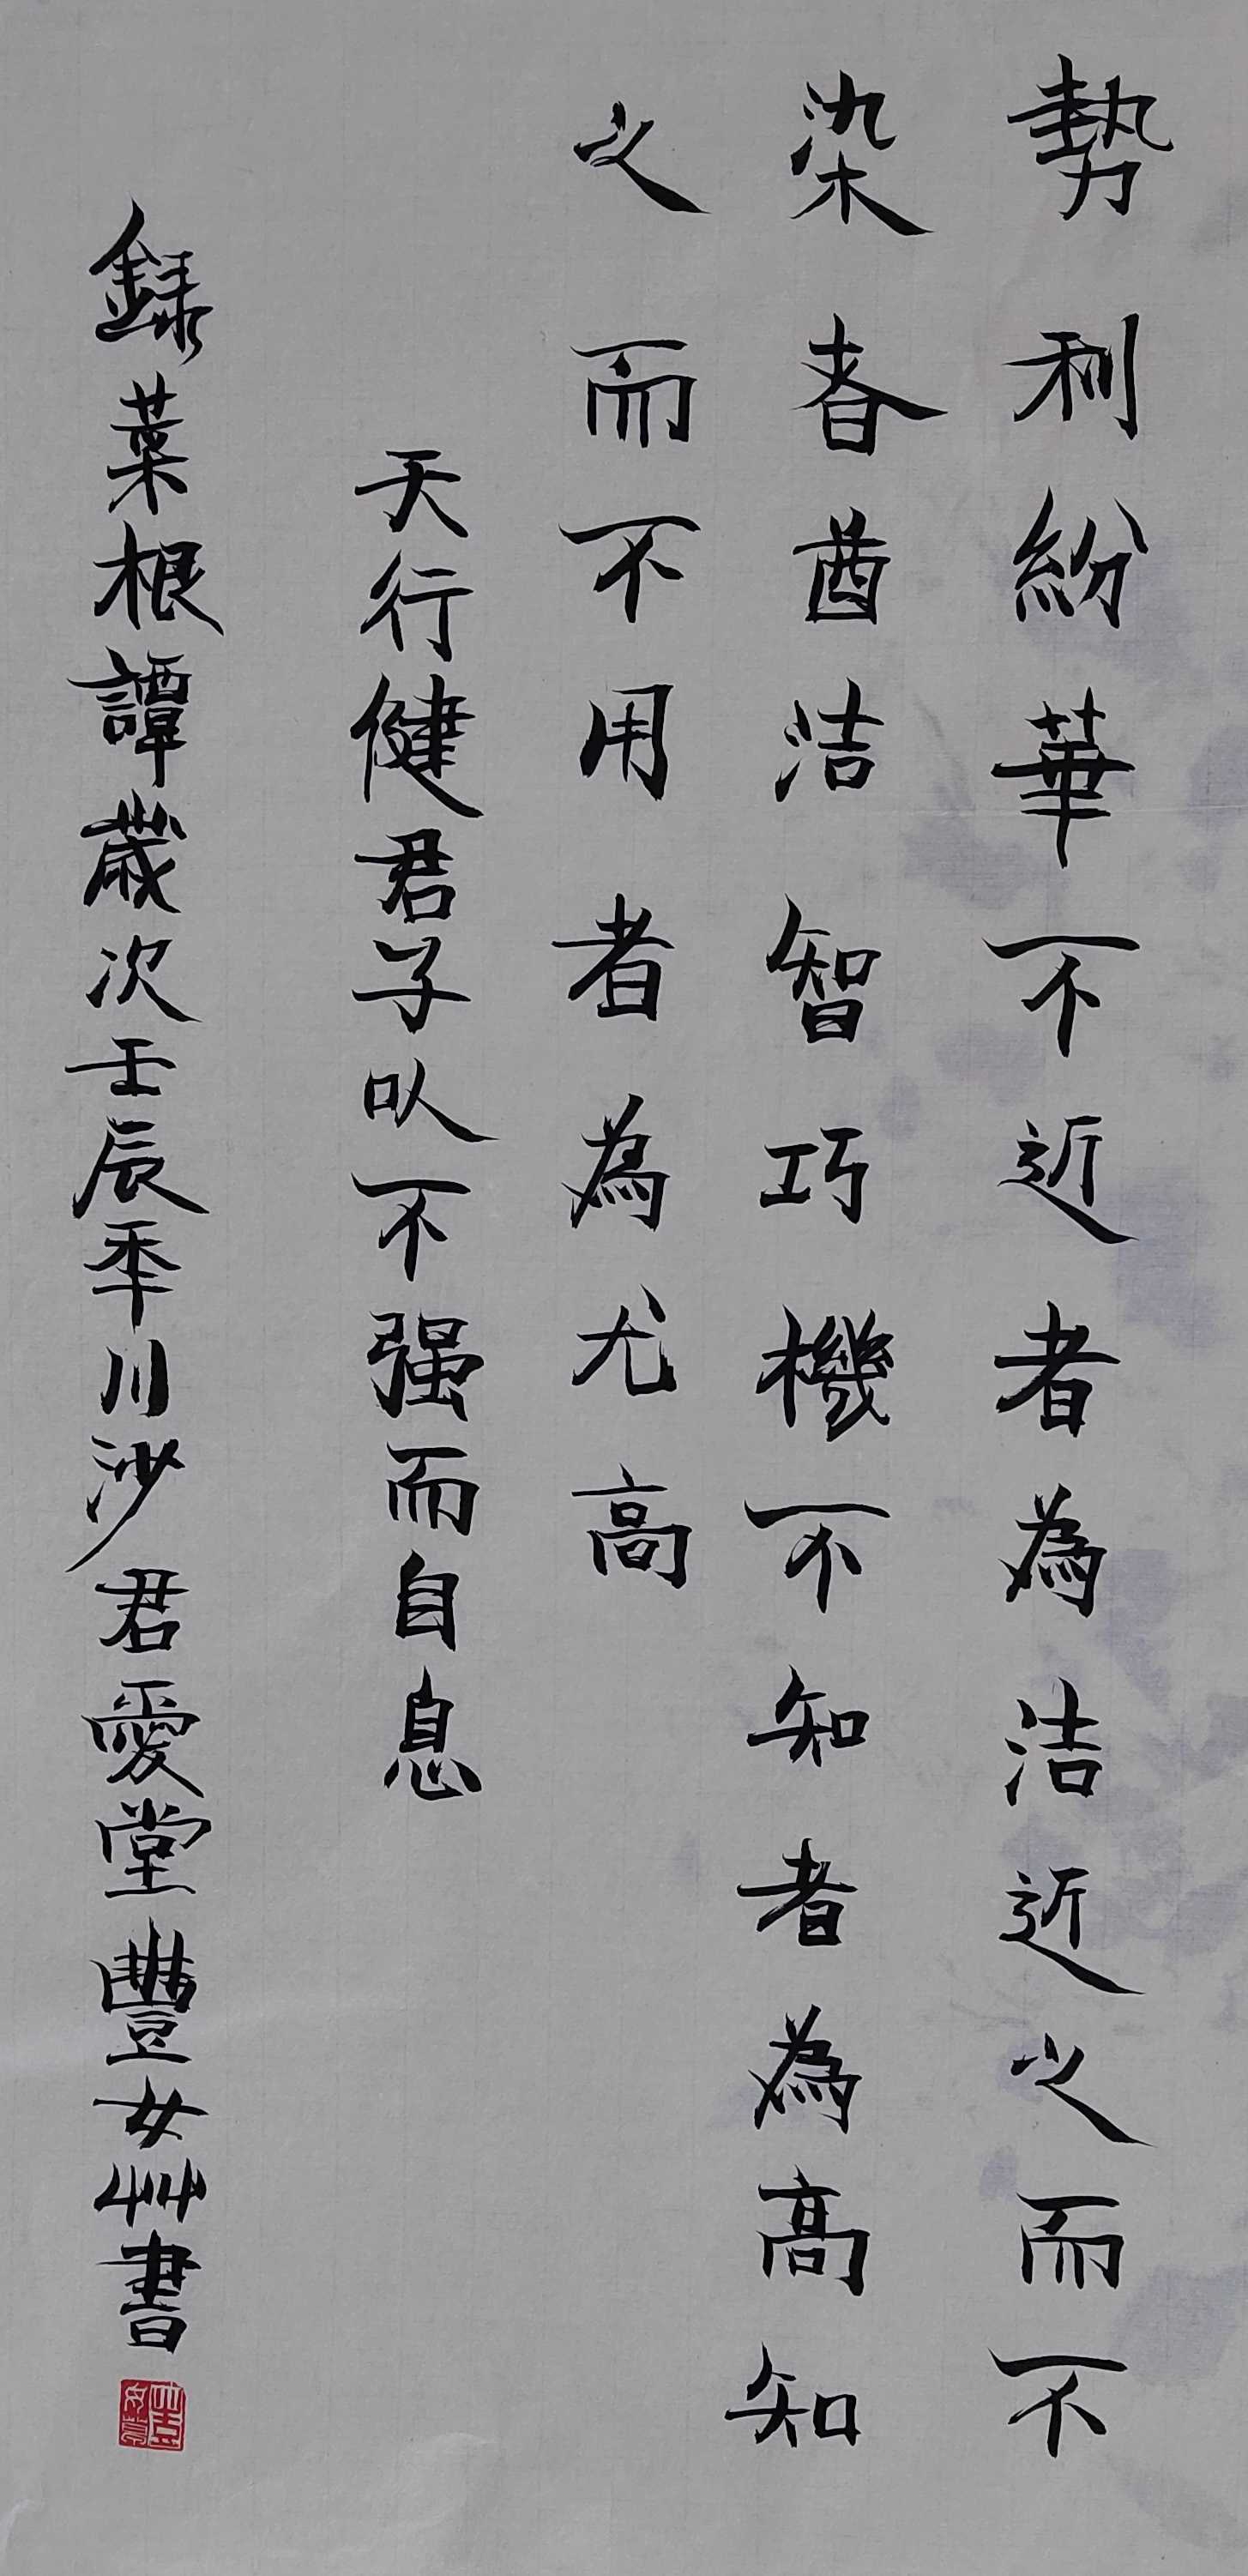 勢利紛華不近者為洁近之而不
染者酋洁智巧機不知者為高知
之而不用者為尤高
天行健君子以不强而自息
録菜根譚歲次壬辰年川沙君愛堂豐女艸書